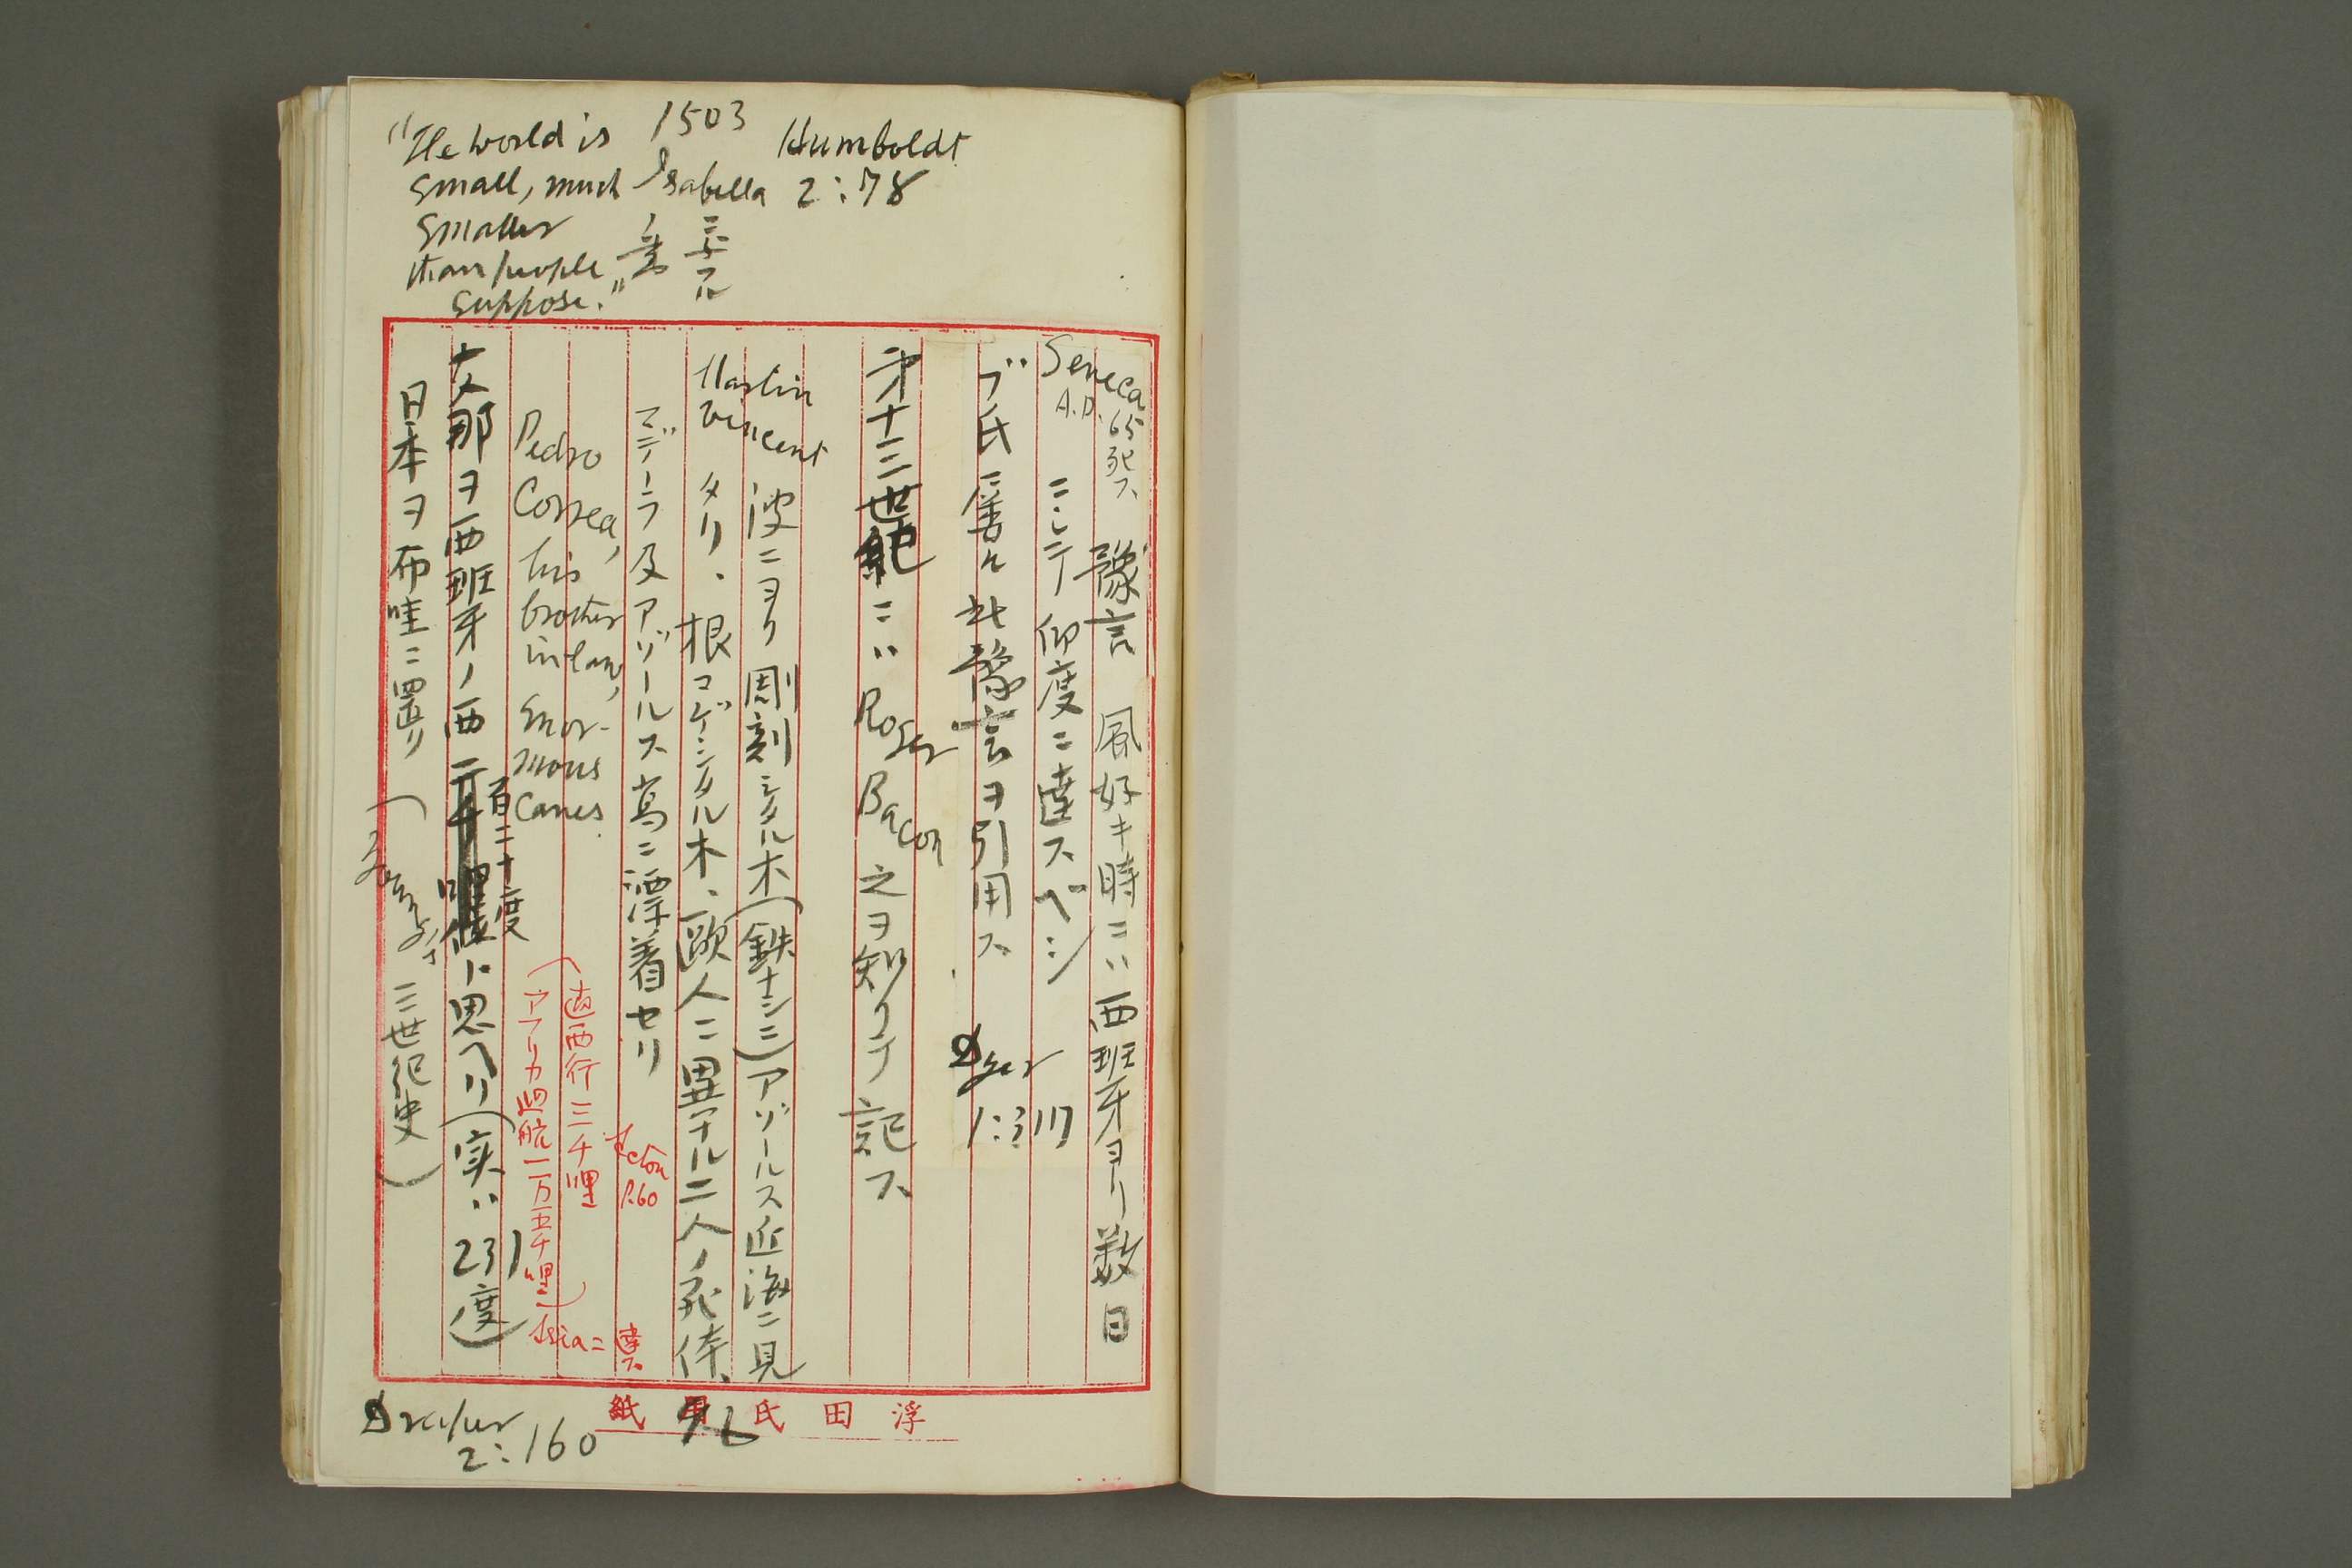 "The world is
small, much
smaller
than people
suppose."
1503
Isabella
ニ奉ル
書
Humboldt
2:78
Seneca
A.D. 65死ス
豫言 風好キ時ニハ西班牙ヨリ数日
ニシテ印度ニ達スベシ
ブ氏屡々此豫言ヲ引用ス
1:317
才十三世紀ニハ Roger Bacon 之ヲ知リテ記ス
Martin
Vincent
波ニヨリ周刻シタル木(鉄ナシニ)アゾールス近海ニ見
タリ、根コゲシタル木、欧人ニ異ナル二人ノ死体、
マデーラ及アゾールス島ニ漂着セリ
Acton
P.60
Pedro
Correa,
his
brother
in law,
Enor-
mous
canes
(直西行三千哩
アフリカ廻航一万五千哩)
Asia=達ス
支那ヲ西班牙ノ西 百二十度 ト思ヘリ(実ハ231度)
日本ヲ布哇ニ置リ
三世紀史)
Draper
2:160
浮田氏用紙